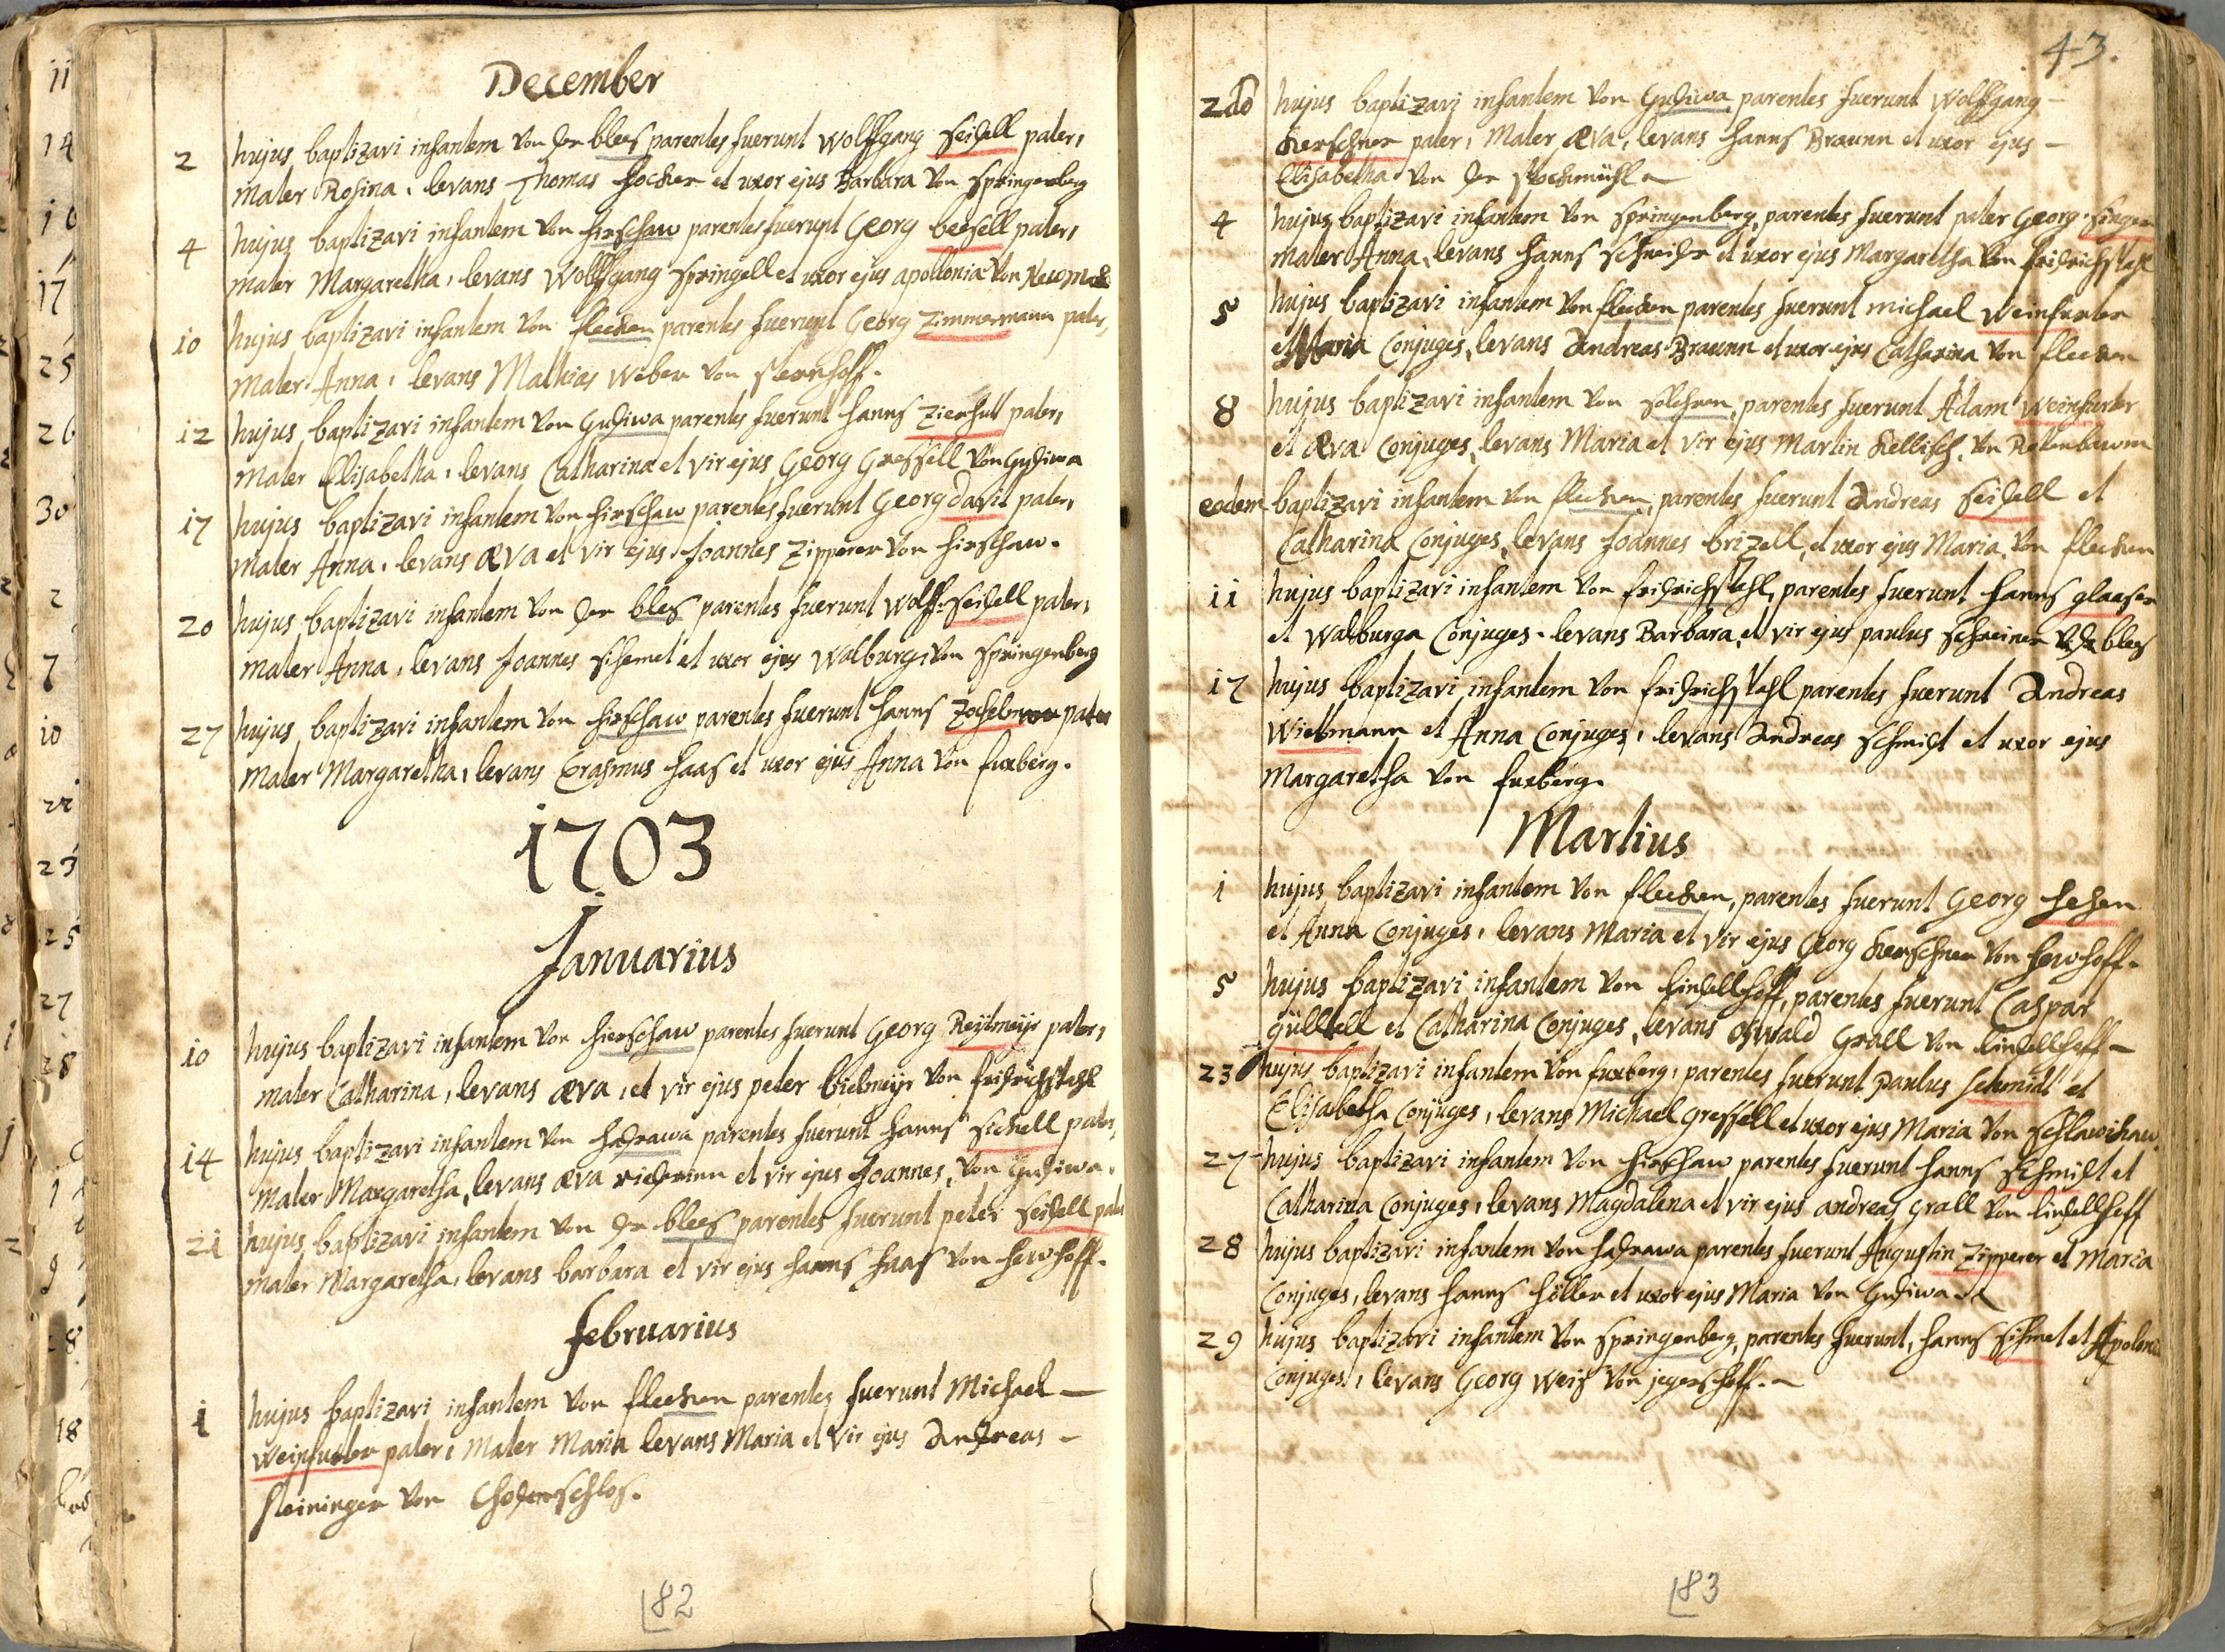 December
2 hujus baptizavi infantem von der blees parentes fuerunt Wolffgang seidell pater,
Mater Rosina, levans Thomas hocker et uxor ejus Barbara von springenberg
4 hujus baptizavi infantem von hirschaw parentes fuerunt Georg beesell pater,
Mater Margaretha, levans Wolffgang springell et uxor ejus apollonia von Newmark
10 hujus baptizavi infantem von flecken parentes fuerunt Georg Zimmermann pater,
Mater Anna, levans Mathias Weber von
12 hujus baptizavi infantem von Gudiwa parentes fuerunt hanns Zierhutt pater,
Mater Elisabetha, levans Catharina et vir ejus Georg Gressell von Gudiwa
17 hujus baptizavi infantem von hirschaw parentes fuerunt Georg davit pater,
Mater Anna, levans Æva et vir ejus Joannes Zipperer von hirschaw.
20 hujus baptizavi infantem von der bles parentes fuerunt Wolff seidell pater,
Mater Anna, levans Joannes sihmet et uxor ejus Walburg, von springenberg
27 hujus baptizavi infantem von hirschaw parentes fuerunt hanns pater
Mater Margaretha, levans Erasmus haas et uxor ejus Anna von fuxberg.
1703
Januarius
10 hujus baptizavi infantem von hierschaw parentes fuerunt Georg Reytmeyr pater,
mater Catharina, levans Æva, et vir ejus peter bielmeyr von fridrichstahl
14 hujus baptizavi infantem von hadrawa parentes fuerunt hanns sickell pater,
Mater Margaretha, levans Æva riederinn et vir ejus Joannes, von Gudiwa.
21 hujus baptizavi infantem von der blees parentes fuerunt peter seidell pater
mater Margaretha, levans barbara et vir ejus hanns haas von hewhoff.
februarius
1 hujus baptizavi infantem von flecken parentes fuerunt Michael —
Weinfurter pater, Mater Maria levans Maria et vir ejus Andreas —
steininger von Chodenschlos.
182
43.
2do hujus baptizavi infantem von Gudiwa, parentes fuerunt Wolffgang —
Kerschner pater, Mater Æva, levans hanns Braunn et uxor ejus —
Elisabetha von der stockmühl
4 hujus baptizavi infantem von springenberg, parentes fuerunt pater Georg singer
mater Anna, levans hanns schneider et uxor ejus Margaretha von fridrichstahl
5 hujus baptizavi infantem von flecken parentes fuerunt michael Weinfurter
et Maria Conjuges, levans Andreas Braunn et uxor ejus Catharina von flecken
8 hujus baptizavi infantem von parentes fuerunt Adam Weinfurter
et Æva Conjuges, levans Maria et vir ejus Martin Kellisch, von Rotenbawm
eodem baptizavi infantem von flecken, parentes fuerunt Andreas seidell et
Catharina Conjuges, levans Joannes brizell, et uxor ejus Maria, von flecken
11 hujus baptizavi infantem von fridrichstahl, parentes fuerunt hanns glaaser
et Walburga Conjuges, levans Barbara, et vir ejus paulus schreiner v der blees
17 hujus baptizavi infantem von fridrichstahl parentes fuerunt Andreas
Wietmann et Anna Conjuges, levans Andreas schmidt et uxor ejus
Margaretha von fuxberg.
Martius
1 hujus baptizavi infantem von flecken, parentes fuerunt Georg hesen
et Anna Conjuges, levans Maria et vir ejus Georg Kerschner von hewhoff.
5 hujus baptizavi infantem von lindellhoff, parentes fuerunt Caspar
gülttell et Catharina Conjuges, levans oswald Grall von lindellhoff —
23 hujus baptizavi infantem von fuxberg, parentes fuerunt Paulus schmidt et
Elisabetha Conjuges, levans Michael gressell et uxor ejus Maria von schlawihaw
27 hujus baptizavi infantem von hirschaw parentes fuerunt hanns schmidt et
Catharina Conjuges, levans Magdalena et vir ejus andreas grall von lindellhoff
28 hujus baptizavi infantem von hadrawa parentes fuerunt Augustin Zipperer et Maria
Conjuges, levans hanns höller et uxor ejus Maria von Gudiwa
29 hujus baptizavi infantem von springenberg, parentes fuerunt, hanns sihmet et Apoloni
Conjuges, levans Georg Weis von jegershoff.
183